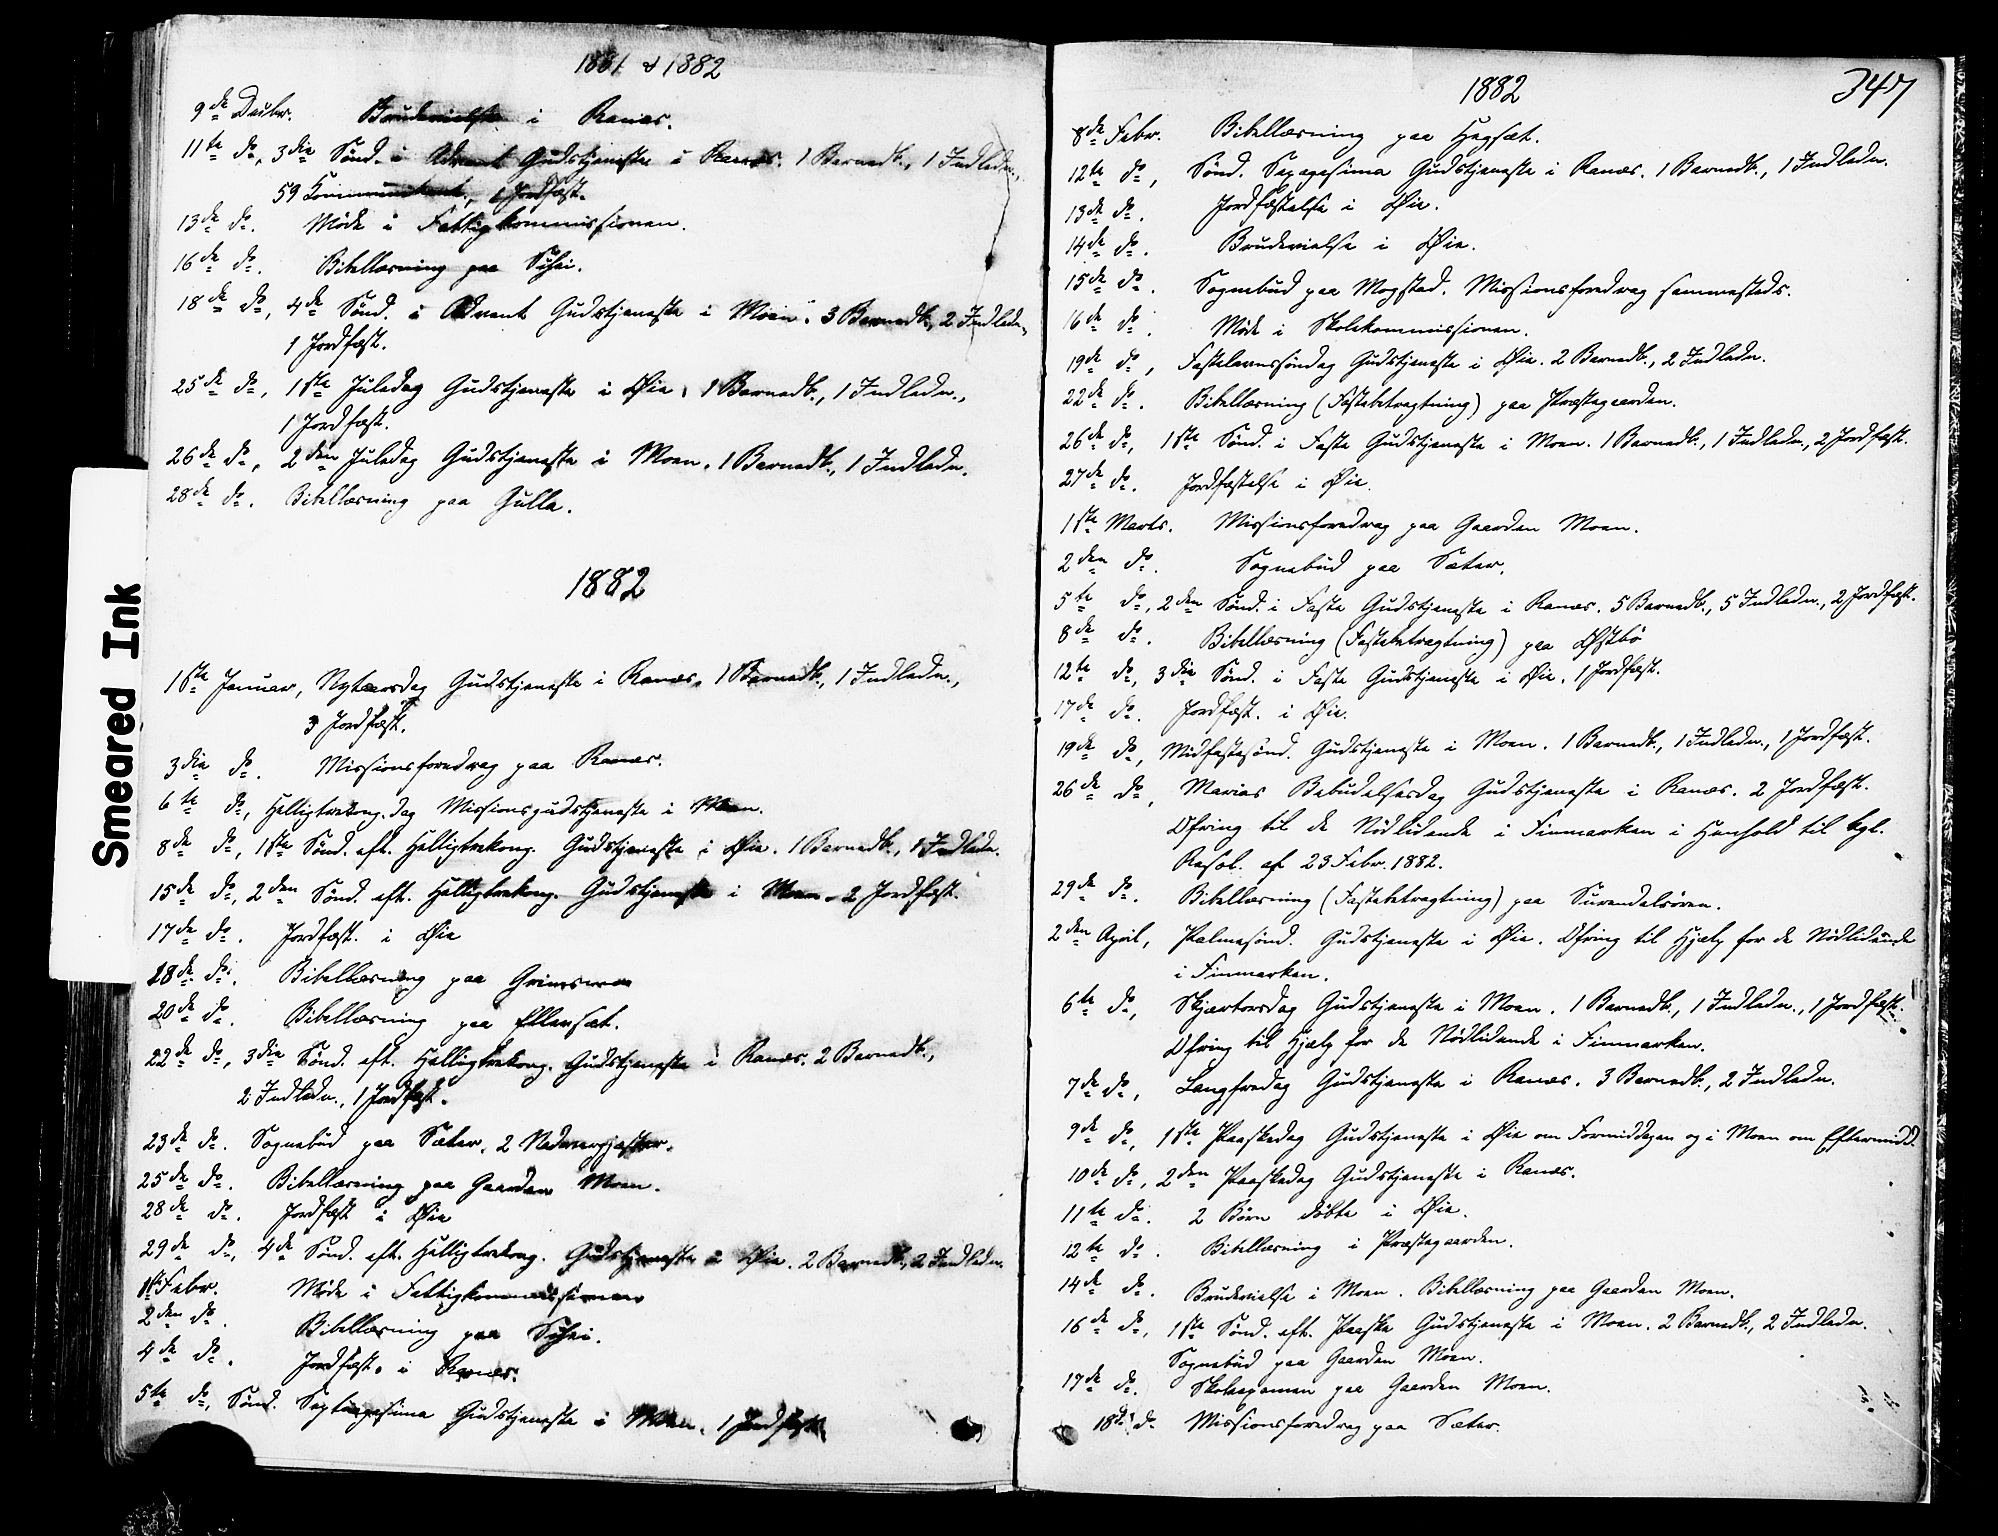 1881 & 1882
9de Decbr. Brudevielse i Ranæs.
11te do, 3die Sønd. i Advent Gudstjeneste i Ranæs. 1 Barnedb., 1 Indledn.,
59 Communikant., 1 Jordfæst.
13de do. Møde i Fattigkommissionen.
16de do. Bibellæsning paa
18de do, 4de Sønd. i Advent Gudstjeneste i Moen. 3 Barnedb., 2 Indledn.,
1 Jordfæst.
25de do, 1ste Juledag Gudstjeneste i Øie. 1 Barnedb., 1 Indledn.,
1 Jordfæst.
26de do, 2den Juledag Gudstjeneste i Moen. 1 Barnedb., 1 Indledn.
28de do. Bibellæsning paa Gulla.
1882
1ste Januar, Nytaarsdag Gudstjeneste i Ranæs. 1 Barnedb., 1 Indledn.,
3 Jordfæst.
3die do. Missionsforedrag paa Ranæs.
6te do, Helligtrekong. dag Missionsgudstjeneste i Moen.
8de do, 1ste Sønd. eft. Helligtrekong. Gudstjeneste i Øie. 1 Barnedb., 1 Indledn.
15de do, 2den Sønd. eft. Helligtrekong. Gudstjeneste i Moen. 2 Jordfæst.
17de do. Jordfæst. i Øie
18de do. Bibellæsning paa Grimsmoen
20de do. Bibellæsning paa Ellensæt.
22de do, 3die Sønd. eft. Helligtrekong. Gudstjeneste i Ranæs. 2 Barnedb.,
2 Indledn., 1 Jordfæst.
23de do. Sognebud paa Sæter. 2 Nadvergjæster.
25de do. Bibellæsning paa Gaarden Moen.
28de do. Jordfæst i Øie
29de do, 4de Sønd. eft. Helligtrekong. Gudstjeneste i Øie. 2 Barnedb., 2 Indledn.
1ste Febr. Møde i Fattigkommissionen
2den do. Bibellæsning paa
4de do. Jordfæst. i Ranæs.
5te do, Sønd. Septuagesima Gudstjeneste i Moen. 1 Jordfæst.
1882
347
8de Febr. Bibellæsning paa Hegsæt.
12te do, Sønd. Sexagesima Gudstjeneste i Ranæs. 1 Barnedb., 1 Indledn.
13de do. Jordfæstelse i Øie.
14de do. Brudevielse i Øie.
15de do. Sognebud paa Mogstad. Missionsforedrag sammesteds.
16de do. Møde i Skolekommissionen.
19de do, Fastelavnssøndag Gudstjeneste i Øie. 2 Barnedb., 2 Indledn.
22de do. Bibellæsning (Fastebetragtning) paa Præstegaarden.
26de do, 1ste Sønd. i Faste Gudstjeneste i Moen. 1 Barnedb., 1 Indledn., 2 Jordfæst.
27de do. Jordfæstelse i Øie.
1ste Marts. Missionsforedrag paa Gaarden Moen.
2den do. Sognebud paa Sæter.
5te do, 2den Sønd. i Faste Gudstjeneste i Ranæs. 5 Barnedb., 5 Indledn., 2 Jordfæst.
8de do. Bibellæsning (Fastebetragtning) paa Østbø
12te do, 3die Sønd. i Faste Gudstjeneste i Øie. 1 Jordfæst.
17de do. Jordfæst. i Øie.
19de do, Midfastesønd. Gudstjeneste i Moen. 1 Barnedb., 1 Indledn., 1 Jordfæst.
26de do, Marias Bebudelsesdag Gudstjeneste i Ranæs. 2 Jordfæst.
Ofring til de Nødlidende i Finmarken i Henhold til kgl.
Resol. af 23 Febr. 1882.
29de do. Bibellæsning (Fastebetragtning) paa Surendalsøren.
2den April, Palmesønd. Gudstjeneste i Øie. Ofring til Hjælp for de Nødlidende
i Finmarken.
6te do, Skjærtorsdag Gudstjeneste i Moen. 1 Barnedb., 1 Indledn., 1 Jordfæst.
Ofring til Hjælp for de Nødlidende i Finmarken.
7de do, Langfredag Gudstjeneste i Ranæs. 3 Barnedb., 2 Indledn.
9de do, 1ste Paaskedag Gudstjeneste i Øie om Formiddagen og i Moen om Eftermidd.
10de do, 2den Paaskedag Gudstjeneste i Ranæs.
11te do. 2 Børn døbte i Øie.
12te do. Bibellæsning i Præstegaarden.
14de do. Brudevielse i Moen. Bibellæsning paa Gaarden Moen.
16de do, 1ste Sønd. eft. Paaske Gudstjeneste i Moen. 2 Barnedb., 2 Indledn.
Sognebud paa Gaarden Moen.
17de do. Skoleexamen paa Gaarden Moen.
18de do. Missionsforedrag paa Sæter.
Smeared Ink